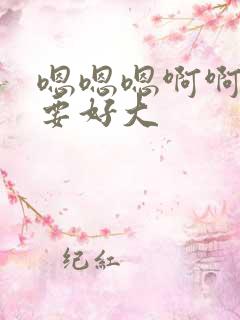 嗯嗯嗯啊啊
要好大
纪红